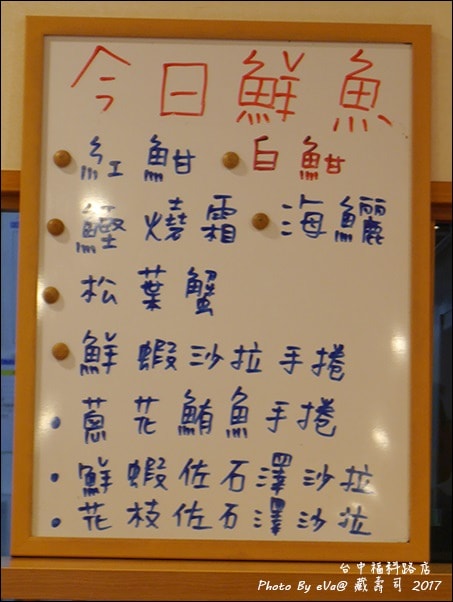 今日鮮魚
紅魽 白魽
鰹燒霜 海鱺
松葉蟹
鮮蝦沙拉手捲
蔥花鮪魚手捲
鮮蝦佐石澤沙拉
花枝佐石澤沙拉
台中福科路店
Photo By eVa@ 藏壽司 2017